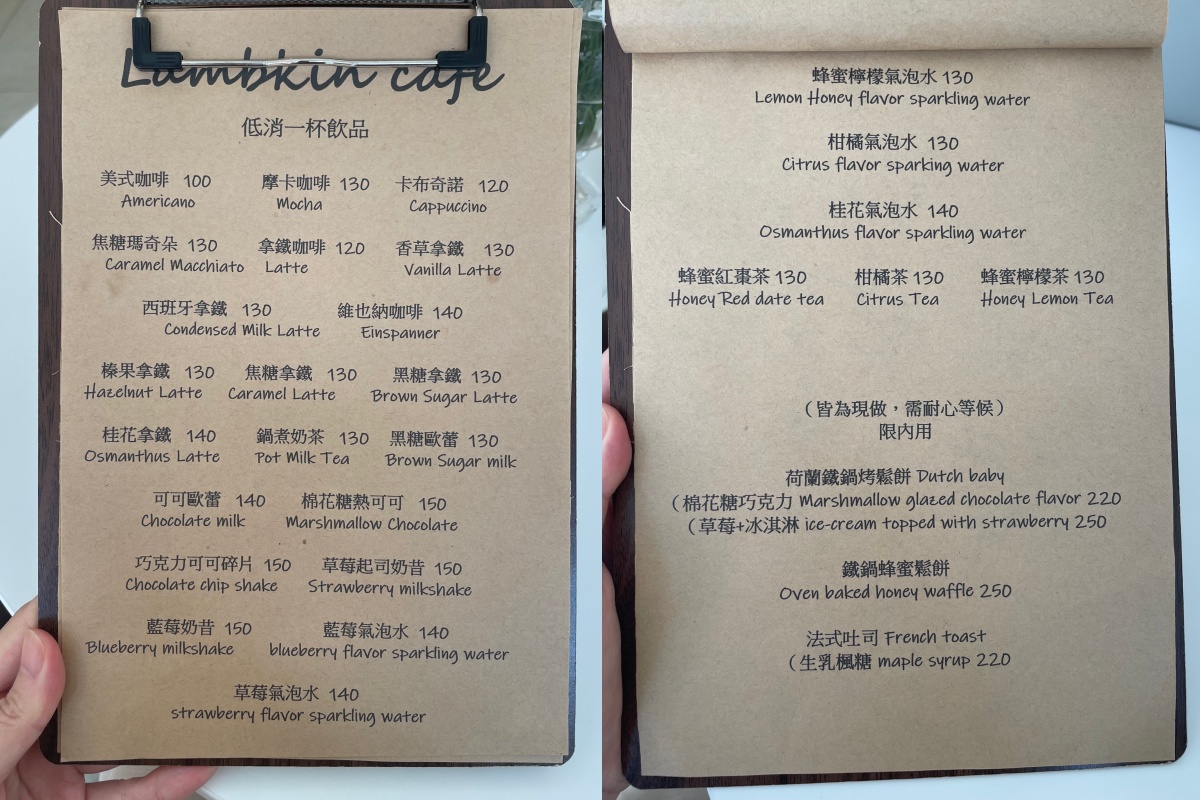 Lambkin cafe
低消一杯飲品
美式咖啡 100 摩卡咖啡 130 卡布奇諾 120
Americano Mocha Cappuccino
焦糖瑪奇朵 130 拿鐵咖啡 120 香草拿鐵 130
Caramel Macchiato Latte Vanilla Latte
西班牙拿鐵 130 維也納咖啡 140
Condensed Milk Latte Einspanner
榛果拿鐵 130 焦糖拿鐵 130 黑糖拿鐵 130
Hazelnut Latte Caramel Latte Brown Sugar Latte
桂花拿鐵 140 鍋煮奶茶 130 黑糖歐蕾 130
Osmanthus Latte Pot Milk Tea Brown Sugar milk
可可歐蕾 140 棉花糖熱可可 150
Chocolate milk Marshmallow Chocolate
巧克力可可碎片 150 草莓起司奶昔 150
Chocolate chip shake Strawberry milkshake
藍莓奶昔 150 藍莓氣泡水 140
Blueberry milkshake blueberry flavor sparkling water
草莓氣泡水 140
strawberry flavor sparkling water
蜂蜜檸檬氣泡水 130
Lemon Honey flavor sparkling water
柑橘氣泡水 130
Citrus flavor sparking water
桂花氣泡水 140
Osmanthus flavor sparkling water
蜂蜜紅棗茶 130 柑橘茶 130 蜂蜜檸檬茶 130
Honey Red date tea Citrus Tea Honey Lemon Tea
（皆為現做，需耐心等候）
限內用
荷蘭鐵鍋烤鬆餅 Dutch baby
（棉花糖巧克力 Marshmallow glazed chocolate flavor 220
（草莓+冰淇淋 ice-cream topped with strawberry 250
鐵鍋蜂蜜鬆餅
Oven baked honey waffle 250
法式吐司 French toast
（生乳楓糖 maple syrup 220